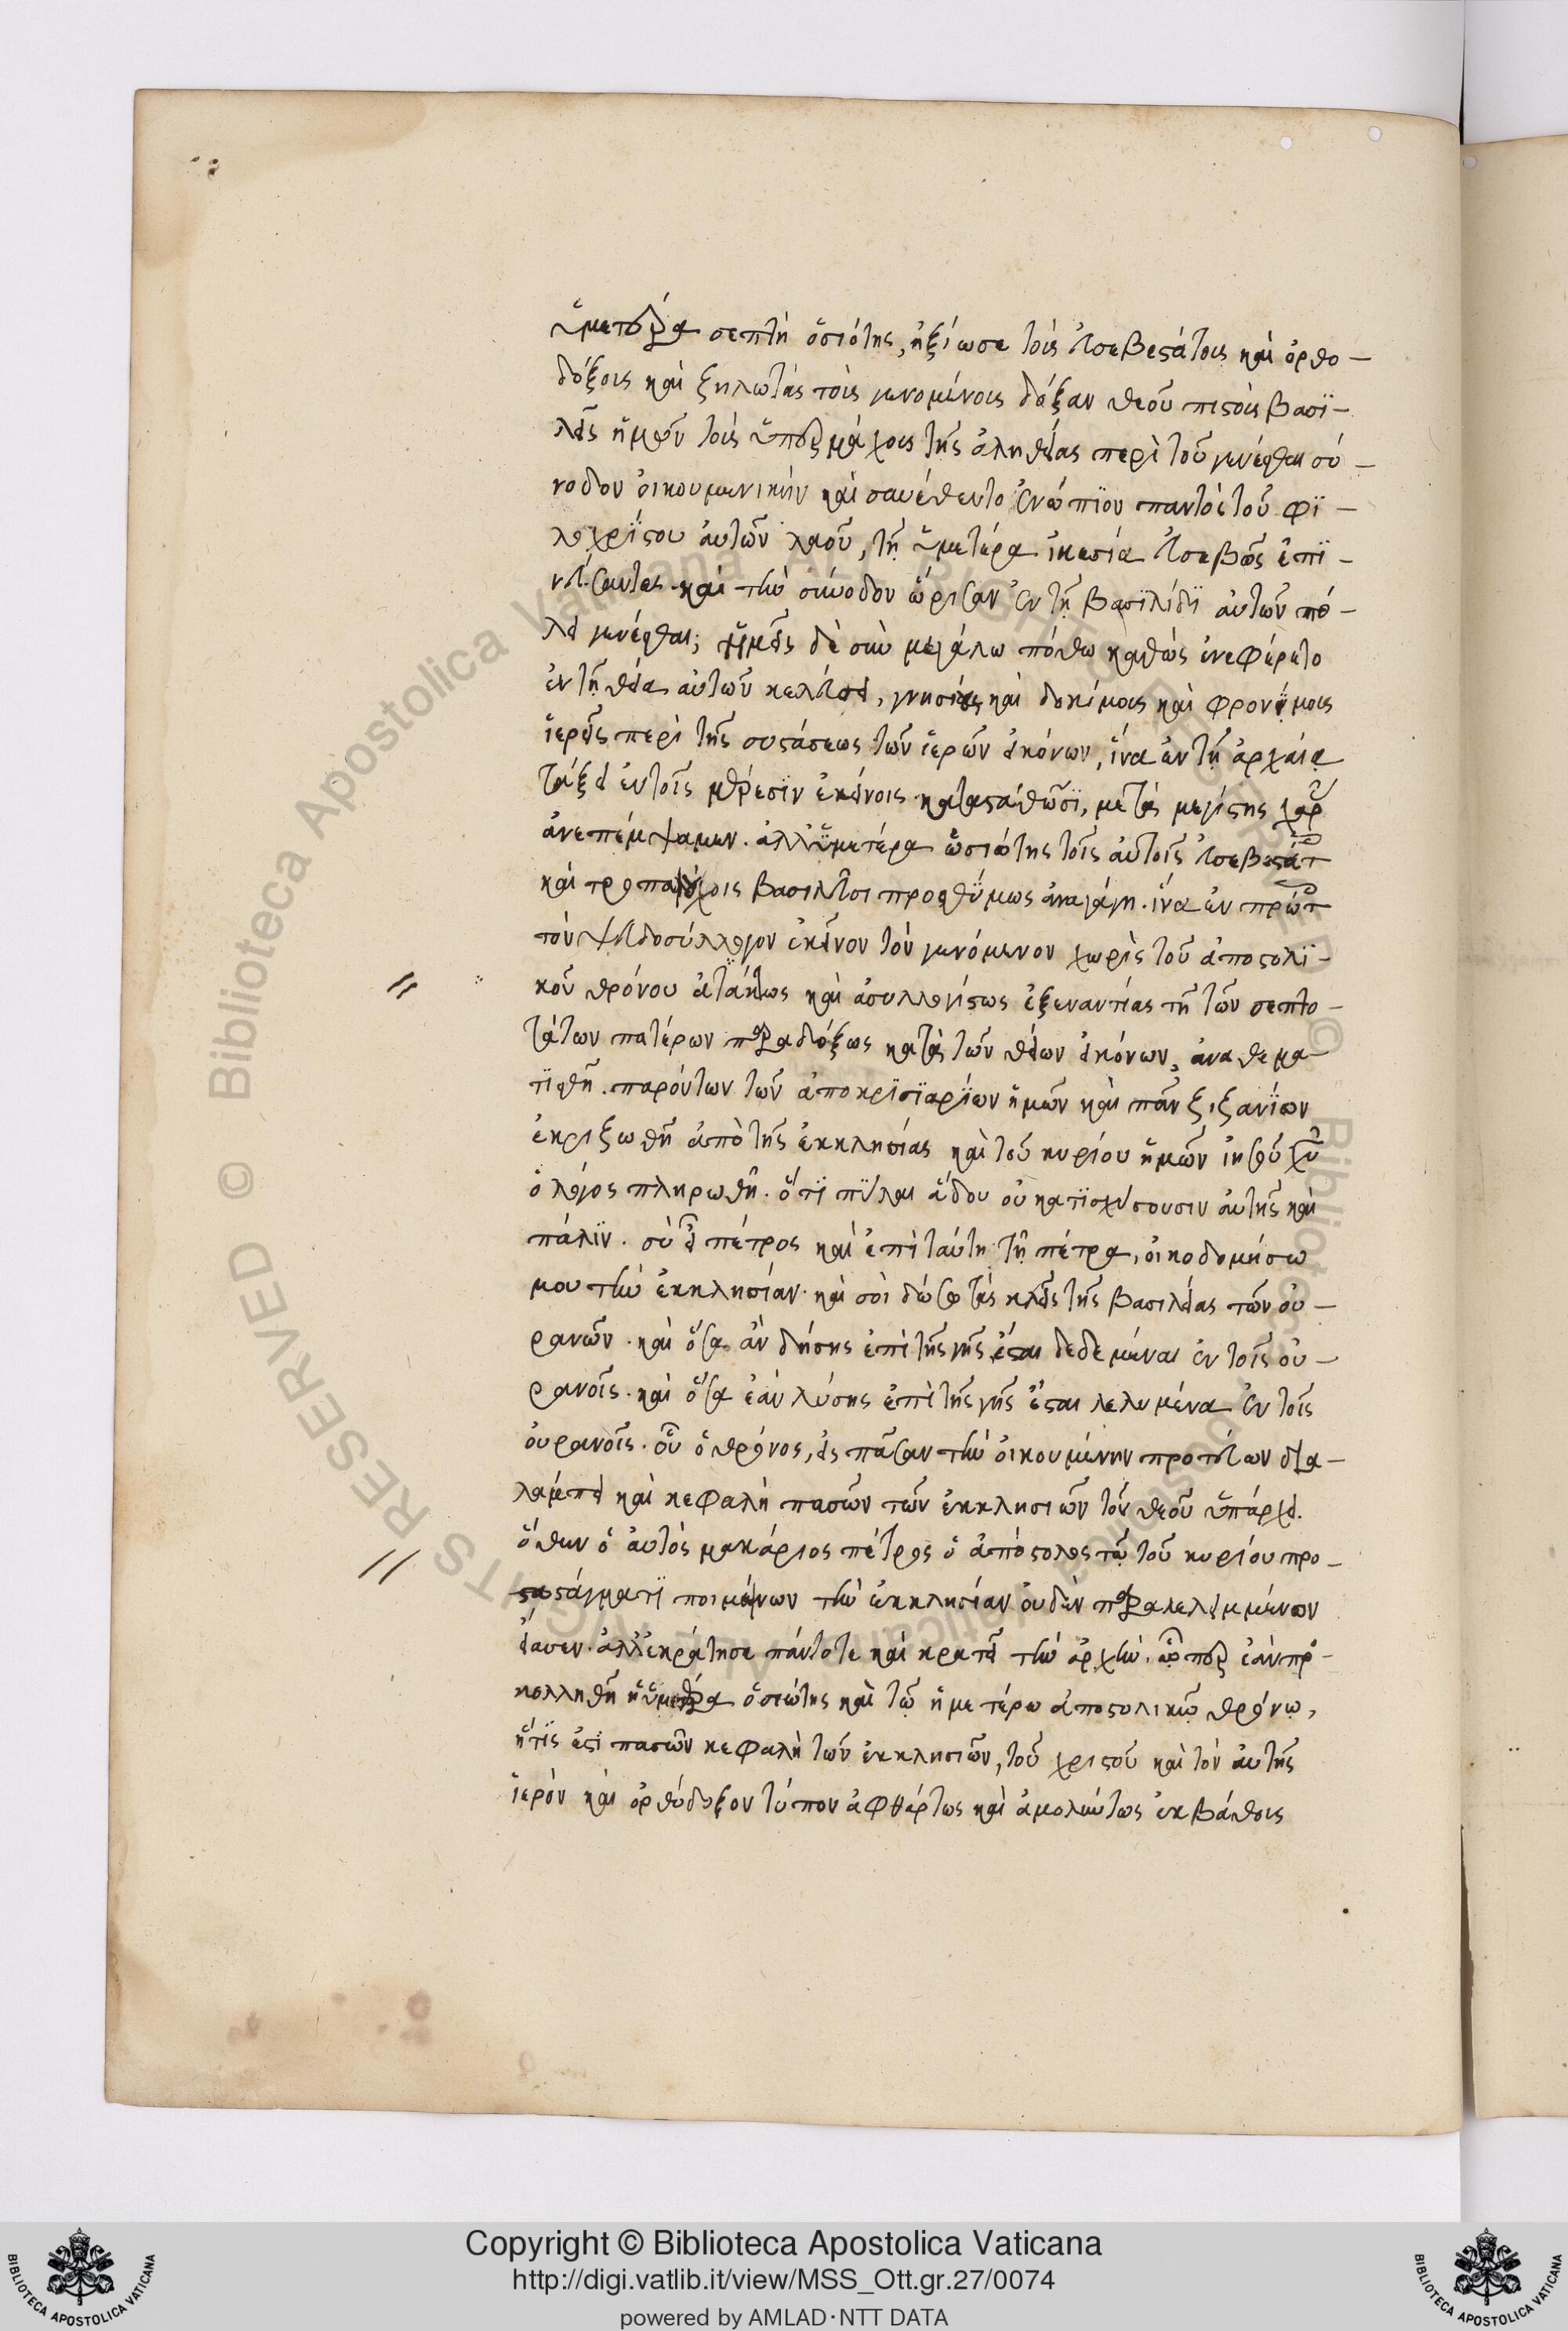 ὑμετέρα σεπτὴ ὁσιότης, ἠξίωσε τοῖς εὐσεβεστάτοις καὶ ὀρθο-
δόξοις καὶ ζηλωτάς τοῖς γενομένοις δόξαν θεοῦ πιστοῖς βασϊ-
λεῖς ἡμῶν τοῖς ὑπερμάχοις τῆς ἀληθείας περὶ τοῦ γενέσθαι σύ-
νοδον οἰκουμενικὴν καὶ συνέθεντο ἐνώπϊον παντὸς τοῦ φϊ-
λοχρίστου αὐτῶν λαοῦ, τῇ ὑμετέρα ἱκεσία εὐσεβῶς ἐπϊ-
νεύσαντες. καὶ τὴν σύνοδον ὥρισαν ἐν τῇ βασϊλίδϊ αὐτῶν πό-
λει γενέσθαι; ἡμεῖς δὲ σὺν μεγάλω πόθω καθὼς ἐνεφέρετο
ἐν τῇ θεία αὐτῶν κελεύσει, γνησίοις καὶ δοκίμοις καὶ φρονίμοις
ἱερεῖς περὶ τῆς συστάσεως τῶν ἱερῶν εἰκόνων, ἵνα ἐν τῇ ἀρχαία
τάξει ἐν τοῖς μέρεσϊν ἐκείνοις κατασταθῶσϊ, μετὰ μεγίστης χαρ
ἀνεπέμψαμεν. ἀλλ' ἡ ὑμετέρα ὁσιότης τοῖς αὐτοῖς εὐσεβεστάτ
καὶ τροπαιούχοις βασιλεῦσι προθύμως ἀναγάγη. ἵνα ἐν πρώτ
τὸν ψευδοσύλλογον ἐκεῖνον τὸν γενόμενον χωρὶς τοῦ ἀποστολϊ-
κοῦ θρόνου ἀτάκτως καὶ ἀσυλλογίστως ἐξεναντίας τῇ τῶν σεπτο-
τάτων πατέρων παραδόξως κατὰ τῶν θείων εἰκόνων, ἀναθεμα-
τϊσθῇ. παρόντων τῶν ἀποκρϊσϊαρΐων ἡμῶν καὶ πᾶν ζιζανΐων
ἐκριζωθῇ ἀπὸ τῆς ἐκκλησίας καὶ τοῦ κυρίου ἡμῶν ἰησοῦ χυ
ὁ λόγος πληρωθῇ. ὅτϊ πΰλαι ἅδου οὐ κατϊσχύσουσιν αὐτῆς καὶ
πάλϊν. σὺ εἶ πέτρος καὶ ἐπὶ ταύτη τῇ πέτρα, οἰκοδομήσω
μου τὴν ἐκκλησίαν. καὶ σοὶ δώσω τὰς κλεῖς τῆς βασιλείας τῶν οὐ-
ρανῶν. καὶ ὅσα ἂν δήσης ἐπὶ τῆς γῆς ἔσται δεδεμέναι ἐν τοῖς οὐ-
ρανοῖς. καὶ ὅσα ἐὰν λύσης ἐπὶ τῆς γῆς ἔσται λελυμένα ἐν τοῖς
οὐρανοῖς. οὗ ὁ θρόνος, εἰς πᾶσαν τὴν οἰκουμένην πρωτεύων δια-
λάμπει καὶ κεφαλὴ πασῶν τῶν ἐκκλησιῶν τοῦ θεοῦ ὑπάρχει.
ὅθεν ὁ αὐτὸς μακάριος πέτρος ὁ ἀπόστολος τῷ τοῦ κυρίου προ-
στάγματϊ ποιμένων τὴν ἐκκλησίαν οὐδὲν παραλελειμμένον
εἴασεν. ἀλλ' ἐκράτησε πάντοτε καὶ κρατεῖ τὴν ἀρχὴν. ὥσπερ ἐὰν πρ
κολληθῇ ἡ ὑμετέρα ὁσιότης καὶ τῷ ἡμετέρω ἀποστολικῷ θρόνῳ,
ἥτϊς ἐστϊ πασῶν κεφαλὴ τῶν ἐκκλησιῶν, τοῦ χριστοῦ καὶ τὸν αὐτῆς
ἱερὸν καὶ ὀρθόδοξον τύπον ἀφθάρτως καὶ ἀμολύντως ἐκ βάθοις
Biblioteca Apostolica Vaticana
ALL RIGHTS RESERVED ©
Copyright © Biblioteca Apostolica Vaticana
http://digi.vatlib.it/view/MSS_Ott.gr.27/0074
powered by AMLAD·NTT DATA
BIBLIOTECA APOSTOLICA VATICANA
BIBLIOTECA APOSTOLICA VATICANA